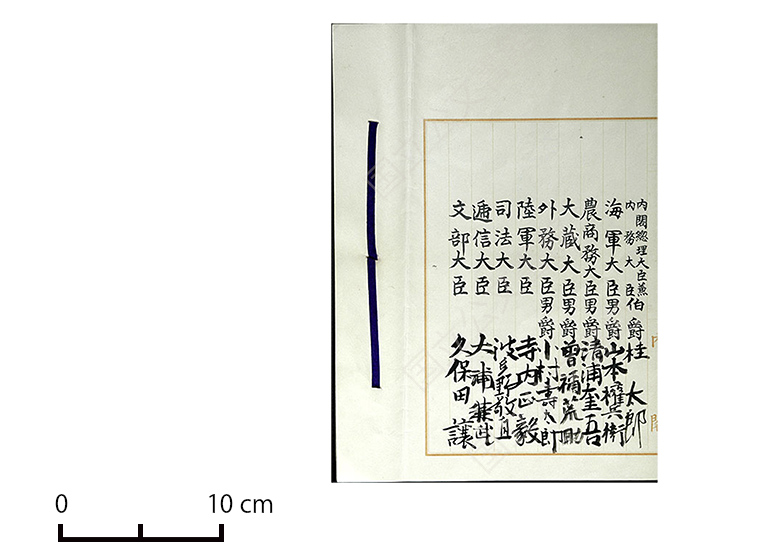 内閣総理大臣兼
内務大臣伯爵桂太郎
海軍大臣男爵山本權兵衛
農商務大臣男爵清浦奎吾
大蔵大臣男爵曾禰荒助
外務大臣男爵小村壽太郎
陸軍大臣寺内正毅
司法大臣波多野敬直
逓信大臣大浦兼武
文部大臣久保田讓
内閣
0 10 cm